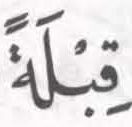 قِبْلَةً